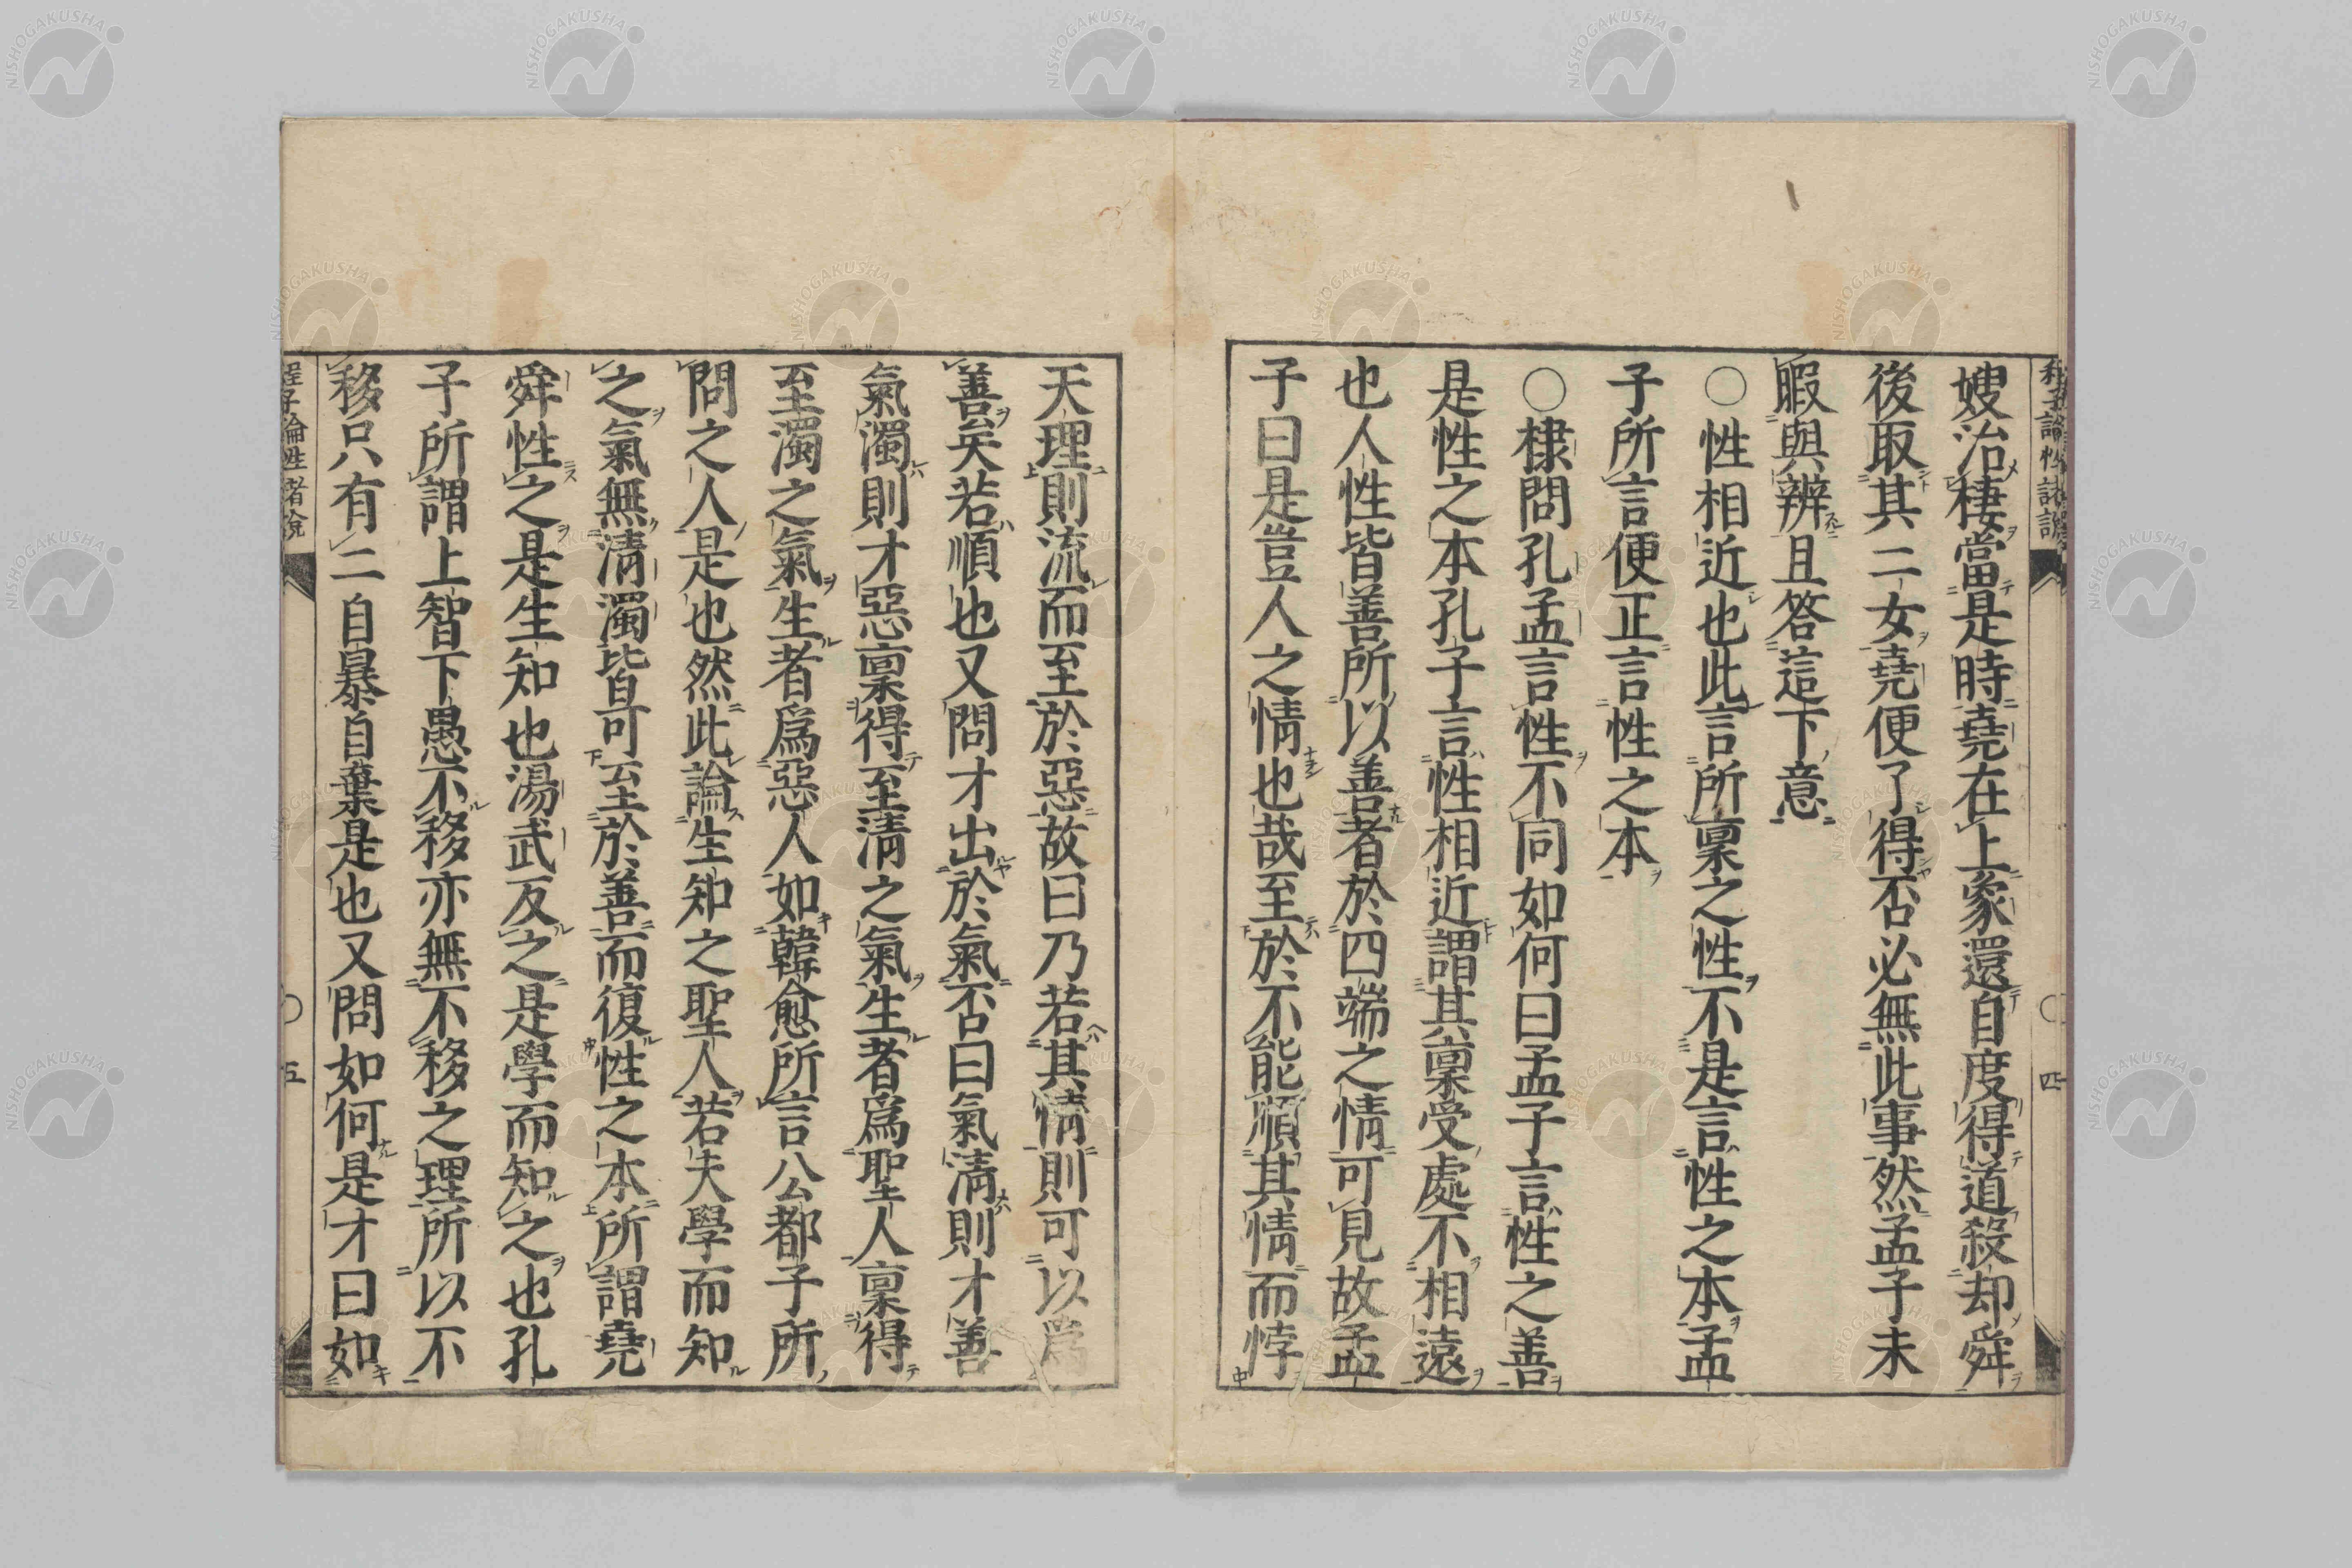 程子論性諸說
四
嫂治棲當是時堯在上象還自度得道殺却舜
後取其二女堯便了得否必無此事然孟子未
暇與辨且答這下意
〇性相近也此言所稟之性不是言性之本孟
子所言便正言性之本
〇棣問孔孟言性不同如何曰孟子言性之善
是性之本孔子言性相近謂其稟受處不相遠
也人性皆善所以善者於四端之情可見故孟
子曰是豈人之情也哉至於不能順其情而悖
天理則流而至於惡故曰乃若其情則可以爲
善矣若順也又問才出於氣否曰氣淸則才善
氣濁則才惡稟得至淸之氣生者爲聖人稟得
至濁之氣生者爲惡人如韓愈所言公都子所
問之人是也然此論生知之聖人若夫學而知
之氣無淸濁皆可至於善而復性之本所謂堯
舜性之是生知也湯武反之是學而知之也孔
子所謂上智下愚不移亦無不移之理所以不
移只有二自暴自棄是也又問如何是才曰如
程子論性諸說
五